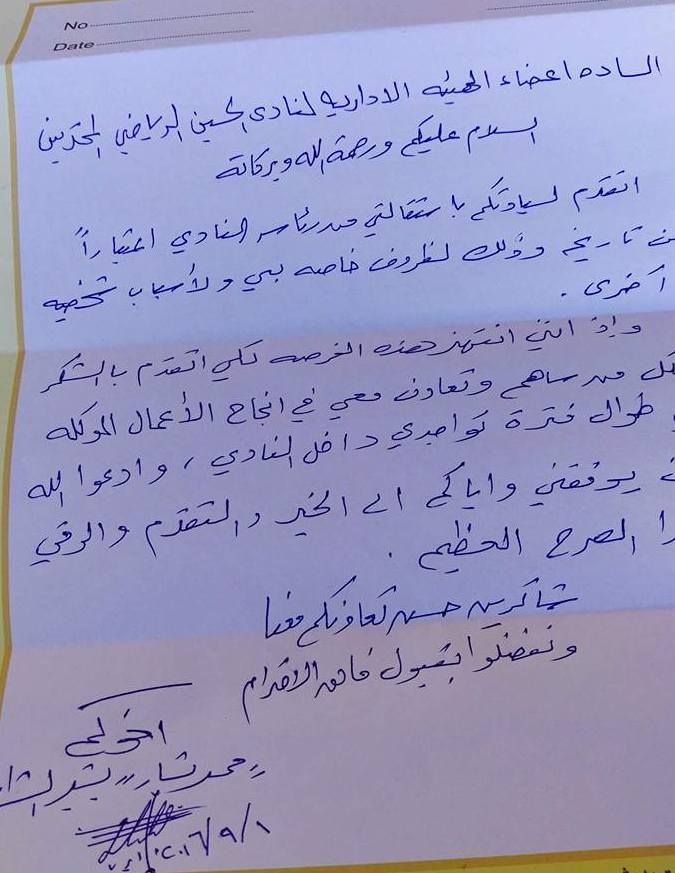 No
Date
الساده اعضاء الهيئه الاداريه لنادي الحسين الرياضي المحترمين
السلام عليكم ورحمة الله وبركاته
اتقدم لسيادتكم باستقالتي من رئاسه النادي اعتباراً
من تاريخه وذلك لظروف خاصه بي ولأسباب شخصيه
أخرى .
وإذ انني انتهز هذه الفرصه لكي اتقدم بالشكر
لكل من ساهم وتعاون معي في انجاح الأعمال الموكله
طوال فترة تواجدي داخل النادي ، وادعوا الله
يوفقني واياكم الى الخير والتقدم والرقي
الصرح العظيم .
شاكرين حسن تعاونكم معنا
وتفضلوا بقبول فائق الاحترام
اخوكم
بشير
٢٠١٦/٩/١